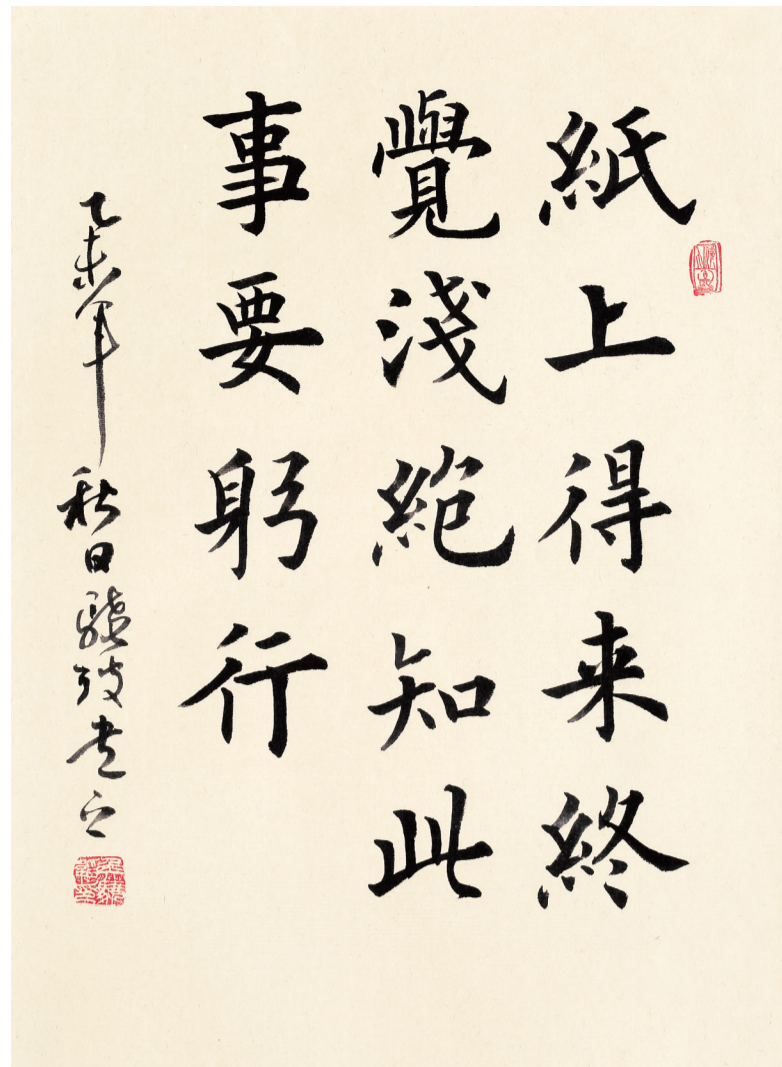 紙上得来終
覺淺絕知此
事要躬行
乙未年秋日書之